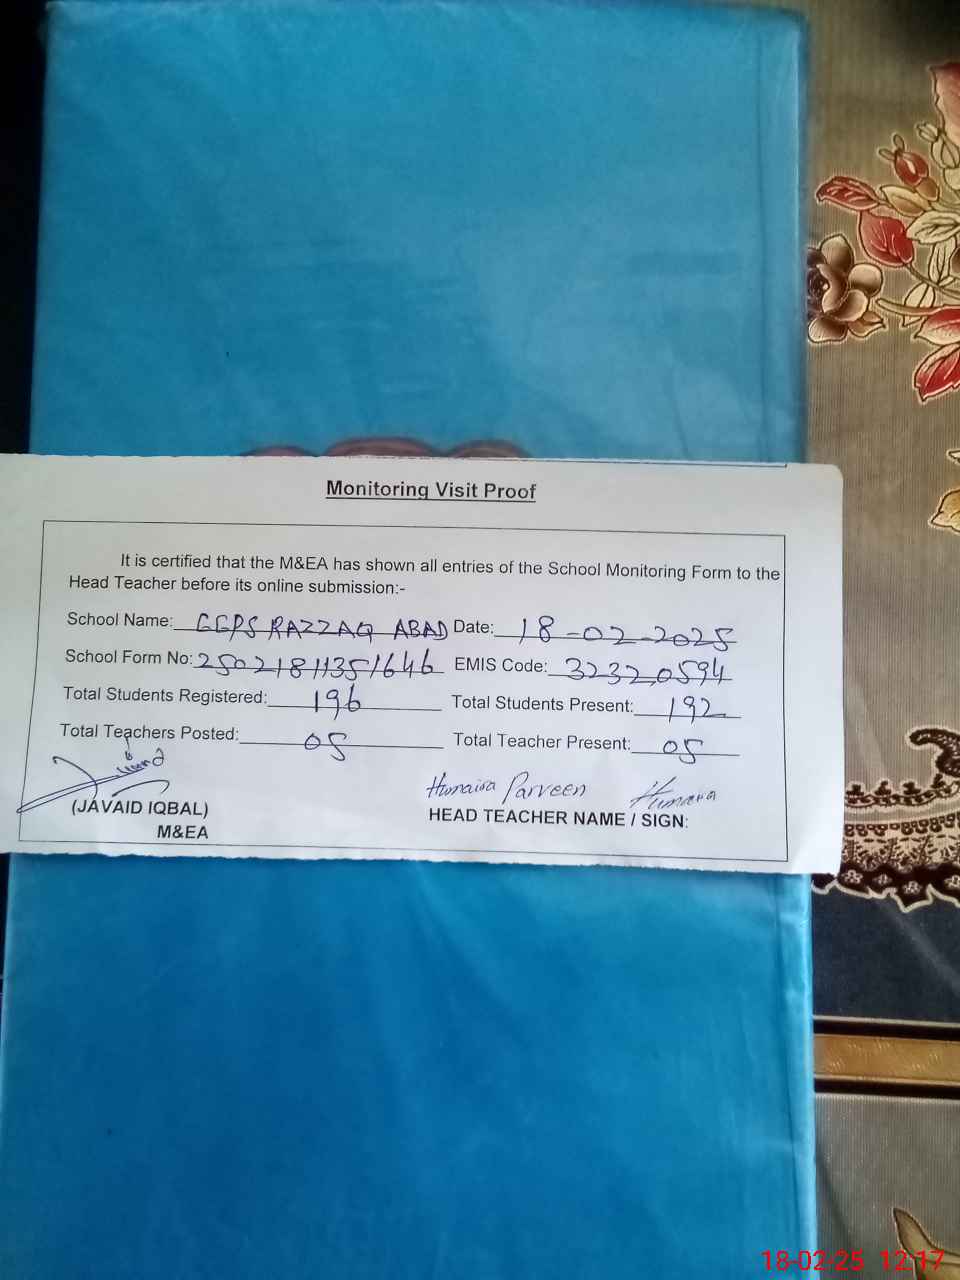 Monitoring Visit Proof
It is certified that the M&EA has shown all entries of the School Monitoring Form to the
Head Teacher before its online submission:-
School Name: GGPS RAZZAQ ABAD Date: 18-02-2025
School Form No: 25021811351646 EMIS Code: 32320594
Total Students Registered: 196 Total Students Present: 192
Total Teachers Posted: 05 Total Teacher Present: 05
Humaira Parveen Humaira
(JAVAID IQBAL) HEAD TEACHER NAME / SIGN:
M&EA
18-02-25 12:17